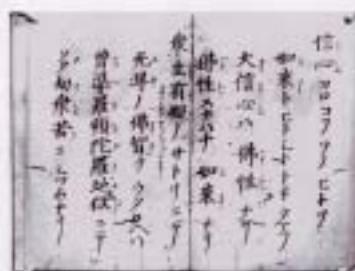 信心ヨロコフソノヒトヲ
如来トヒトシトトキタマフ
大信心ハ佛性ナリ
佛性スナハチ如来ナリ
衆生有碍ノサトリニテ
无碍ノ佛智ヲウタカヘハ
曾婆羅頻陀羅地獄ニテ
多劫衆苦ニシツムナリ